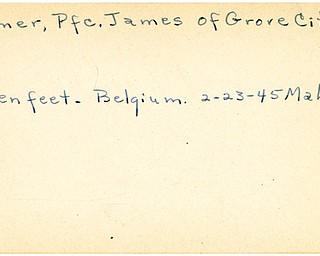 mer, Pfc. James of Grove Ci
en feet. Belgium. 2-23-45 Mah